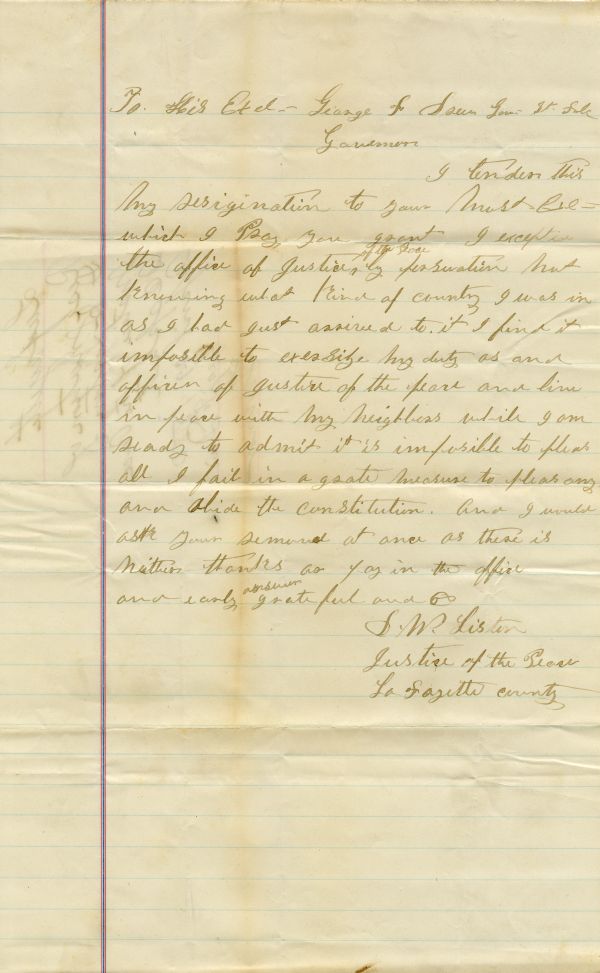 To. His Excl- George F Drew Gov St Fla
Governor
I tender this
my resigination to your Most Exl-
which I Pray you grant I excepted
the office of Justice of the Peace by persuation Not
knowing what kind of county I was in
as I had just arrived to it I find it
imposible to exersize my duty as and
officer of justice of the peace and live
in peace with my neighbors while I am
ready to admit it is imposible to pleas
all I fail in a grate measure to pleas any
and abide the constitution. And I would
ask your removel at once as there is
Nither thanks or pay in the office
and early answer grateful and Co
S. W. Liston
Justice of the Peace
La Fayette county